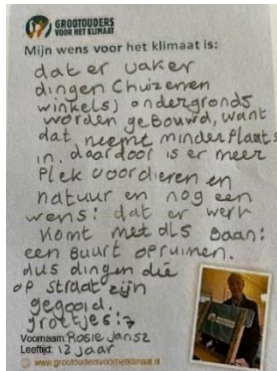 GROOTOUDERS
VOOR HET KLIMAAT
Mijn wens voor het klimaat is:
dat er vaker
dingen (huizen en
winkels) ondergronds
worden gebouwd, want
dat neemt minder plaats
in. daardoor is er meer
Plek voor dieren en
natuur en nog een
wens: dat er werk
komt met als baan:
een buurt opruimen.
dus dingen die
op straat zijn
gegooid.
groetjes:
Voornaam: Rosie Jansz
Leeftijd: 12 jaar
www.grootoudersvoorhetklimaat.nl